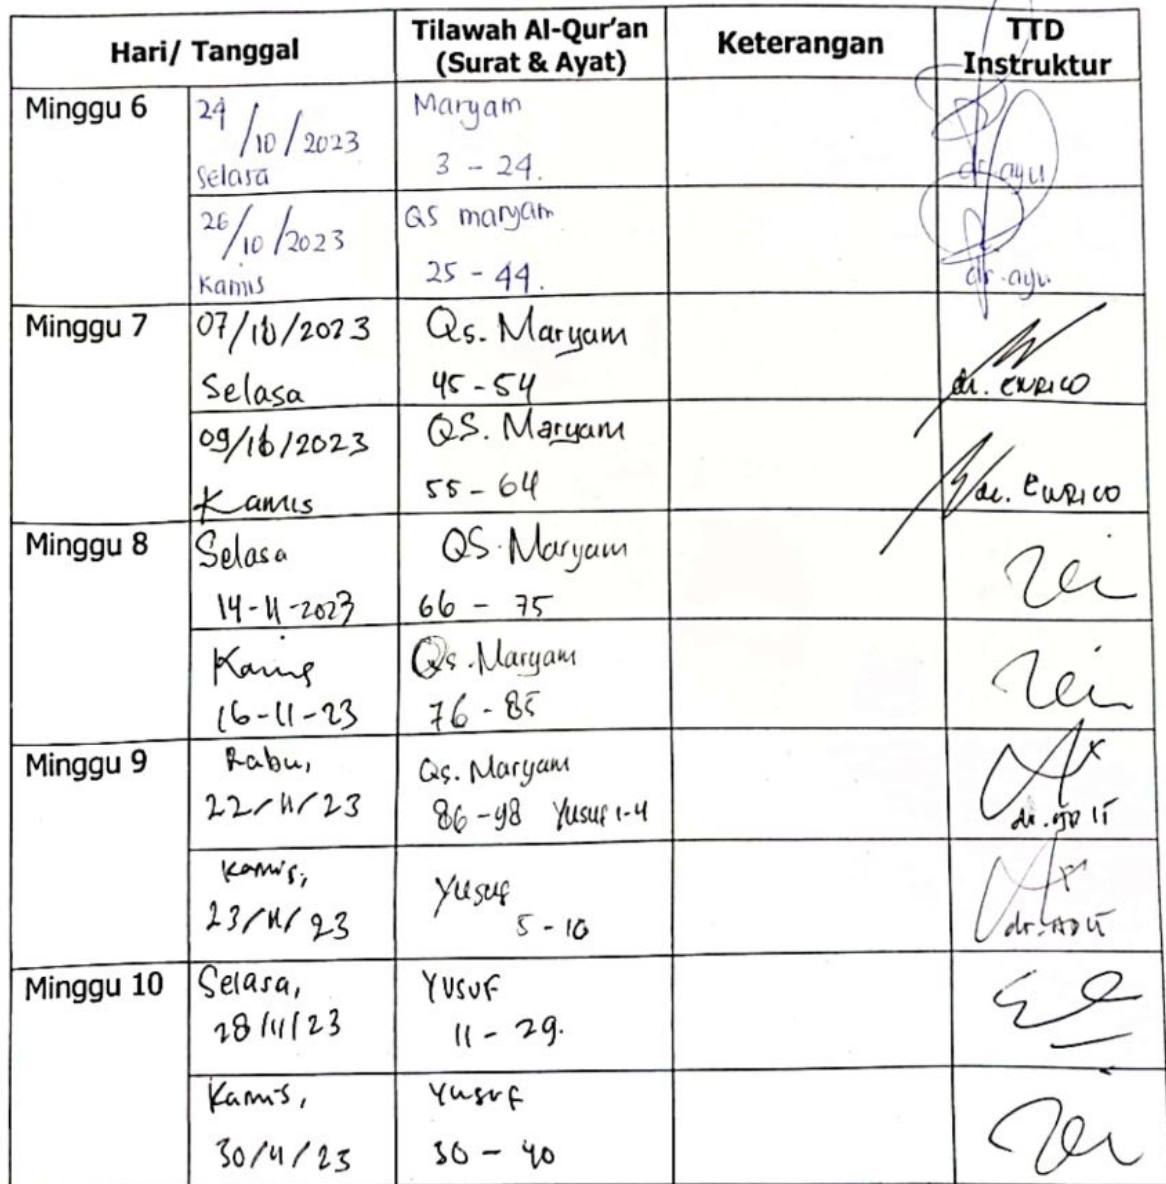 Hari/ Tanggal
Tilawah Al-Qur'an
(Surat & Ayat)
Keterangan
TTD
Instruktur
Minggu 6
24/10/2023
Selasa
Maryam
3 - 24.
dr. ayu
26/10/2023
Kamis
QS maryam
25 - 44.
dr. ayu
Minggu 7
07/10/2023
Selasa
Qs. Maryam
45 - 54
dr. ENRICO
09/10/2023
Kamis
QS. Maryam
55 - 64
dr. ENRICO
Minggu 8
Selasa
14-11-2023
QS. Maryam
66 - 75
Kamis
16-11-23
Qs. Maryam
76 - 85
Minggu 9
Rabu,
22/11/23
Qs. Maryam
86 - 98 Yusuf 1-4
Kamis,
23/11/23
Yusuf
5 - 10
Minggu 10
Selasa,
28/11/23
Yusuf
11 - 29.
Kamis,
30/11/23
Yusuf
30 - 40